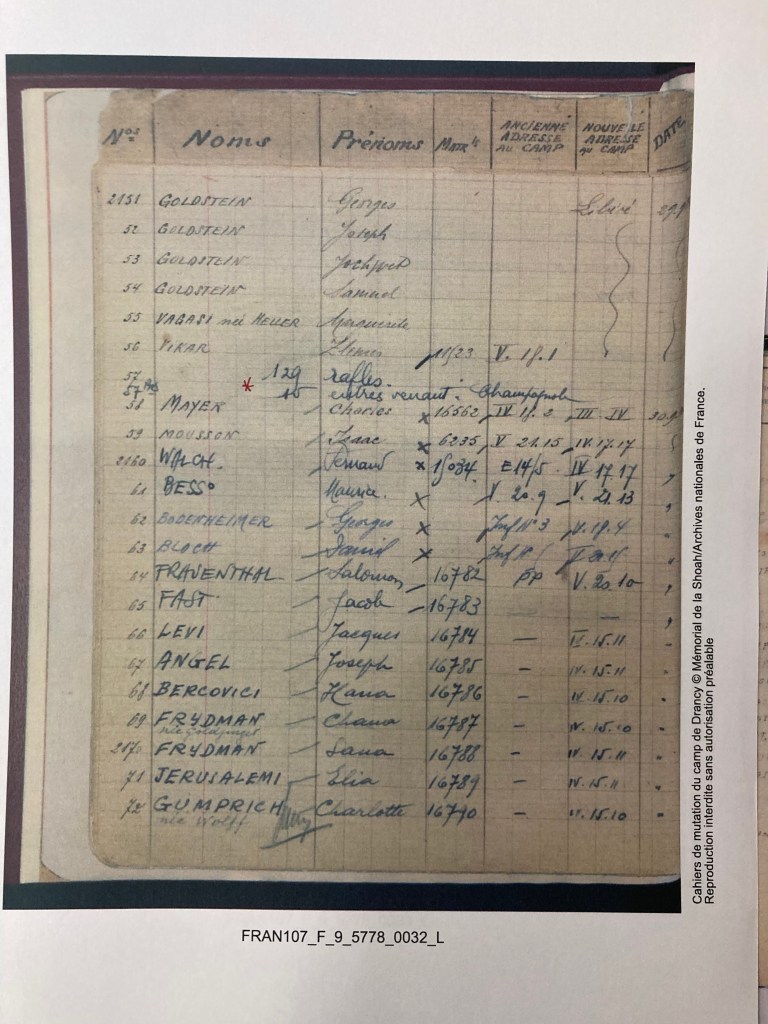 Nos Noms Prénoms Matr le ANCIENNE ADRESSE AU CAMP NOUVELLE ADRESSE au CAMP DATE
2151 GOLDSTEIN Georges Libéré 29.
52 GOLDSTEIN Joseph
53 GOLDSTEIN
54 GOLDSTEIN Samuel
55 VAGASI née HELLER Marguerite
56 11523 V. 18.1
57 129 rafles.
57 * 10 entrés venant. Champagnole
58 MAYER Charles x 16562 IV 18. 2 III - IV 30.9
59 MOUSSON Isaac x 6235 V 21.15 IV.17.17
2060 WALCH. Fernand x E14/5 IV 17 17
61 BESSO Maurice. x V. 20.9 V. 21.13
62 BODENHEIMER Georges x Inf N° 3 V.18.4
63 BLOCH Daniel x
64 FRAUENTHAL Salomon 16782 pp V. 20.10
65 FAST Jacob 16783 — —
66 LEVI Jacques 16784 — IV.15.11
67 ANGEL Joseph 16785 — IV.15.11
68 BERCOVICI Hana 16786 — IV.15.10
69 FRYDMAN Chana 16787 — IV.15.10
née
2170 FRYDMAN Sana 16788 — IV.15.11
71 JERUSALEMI Elia 16789 — IV.15.11
72 GUMPRICH Charlotte 16790 — IV.15.10
née Wolff
FRAN107_F_9_5778_0032_L
Cahiers de mutation du camp de Drancy © Mémorial de la Shoah/Archives nationales de France.
Reproduction interdite sans autorisation préalable